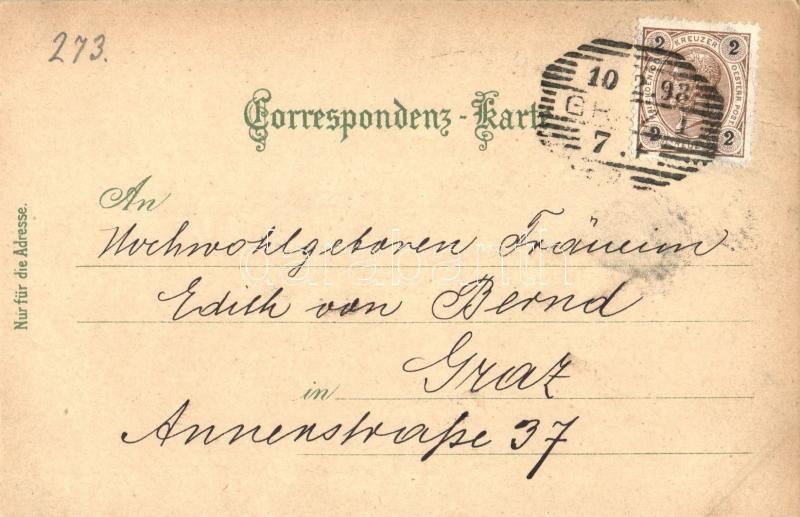 273.
Correspondenz-Karte
2 KREUZER 2
OESTERR. POST.
2 2
10 2 98
7. 1
An
Hochwohlgeboren Fräulein
Edith von Bernd
Graz
in
Annenstraße 37
Nur für die Adresse.
darabanth